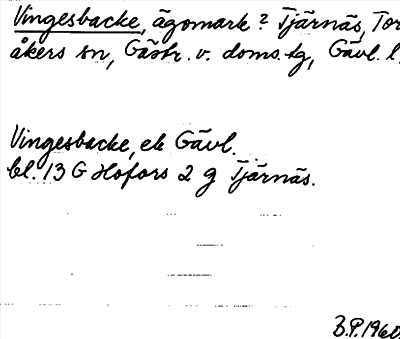 Vingesbacke, ägomark? Tjärnäs, Tor
åkers sn, Gästr. v. doms.tg, Gävl. l.
Vingesbacke, ek Gävl.
bl. 13 G Hofors 2 g Tjärnäs.
B.P. 1960